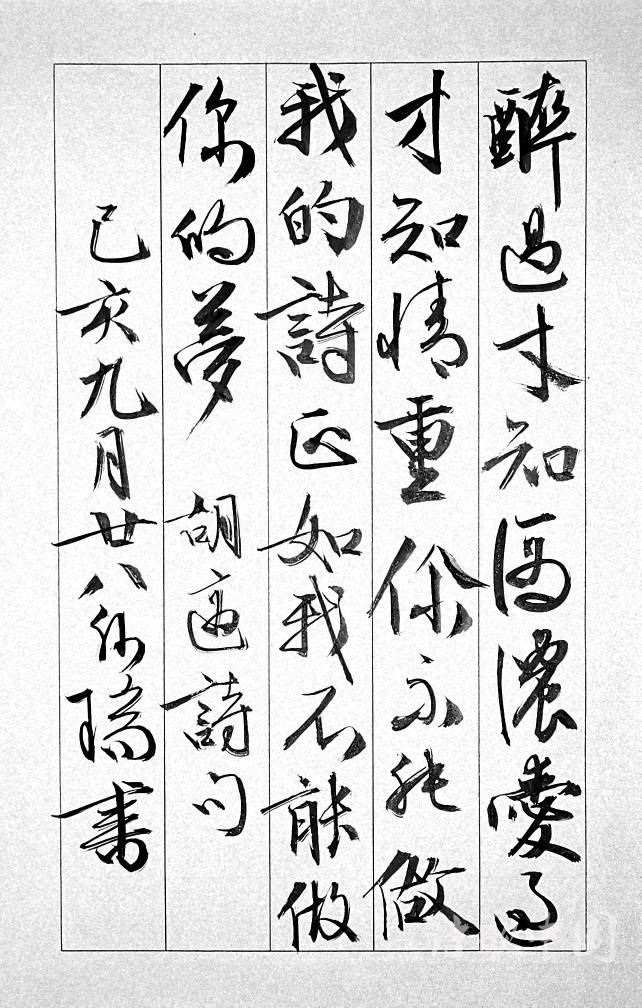 醉過才知酒濃愛過
才知情重你不能做
我的詩正如我不能做
你的夢 胡適詩句
己亥九月廿八 瑞書